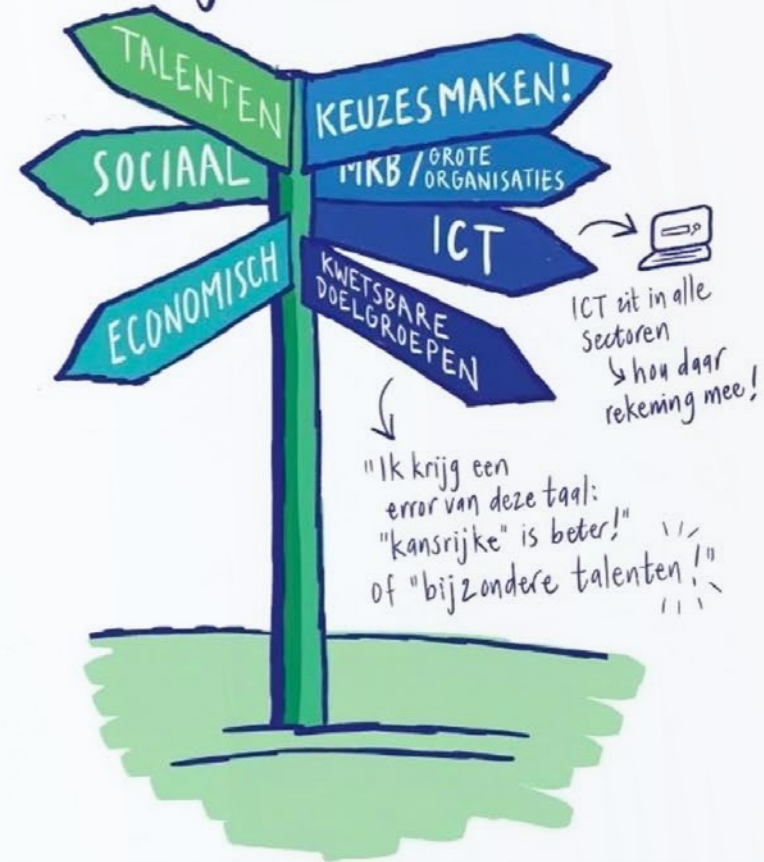 TALENTEN
KEUZES MAKEN!
SOCIAAL
MKB / GROTE
ORGANISATIES
ICT
ECONOMISCH
KWETSBARE
DOELGROEPEN
ICT zit in alle
sectoren
↳ hou daar
rekening mee!
"Ik krijg een
error van deze taal:
"kansrijke" is beter!"
of "bijzondere talenten!"